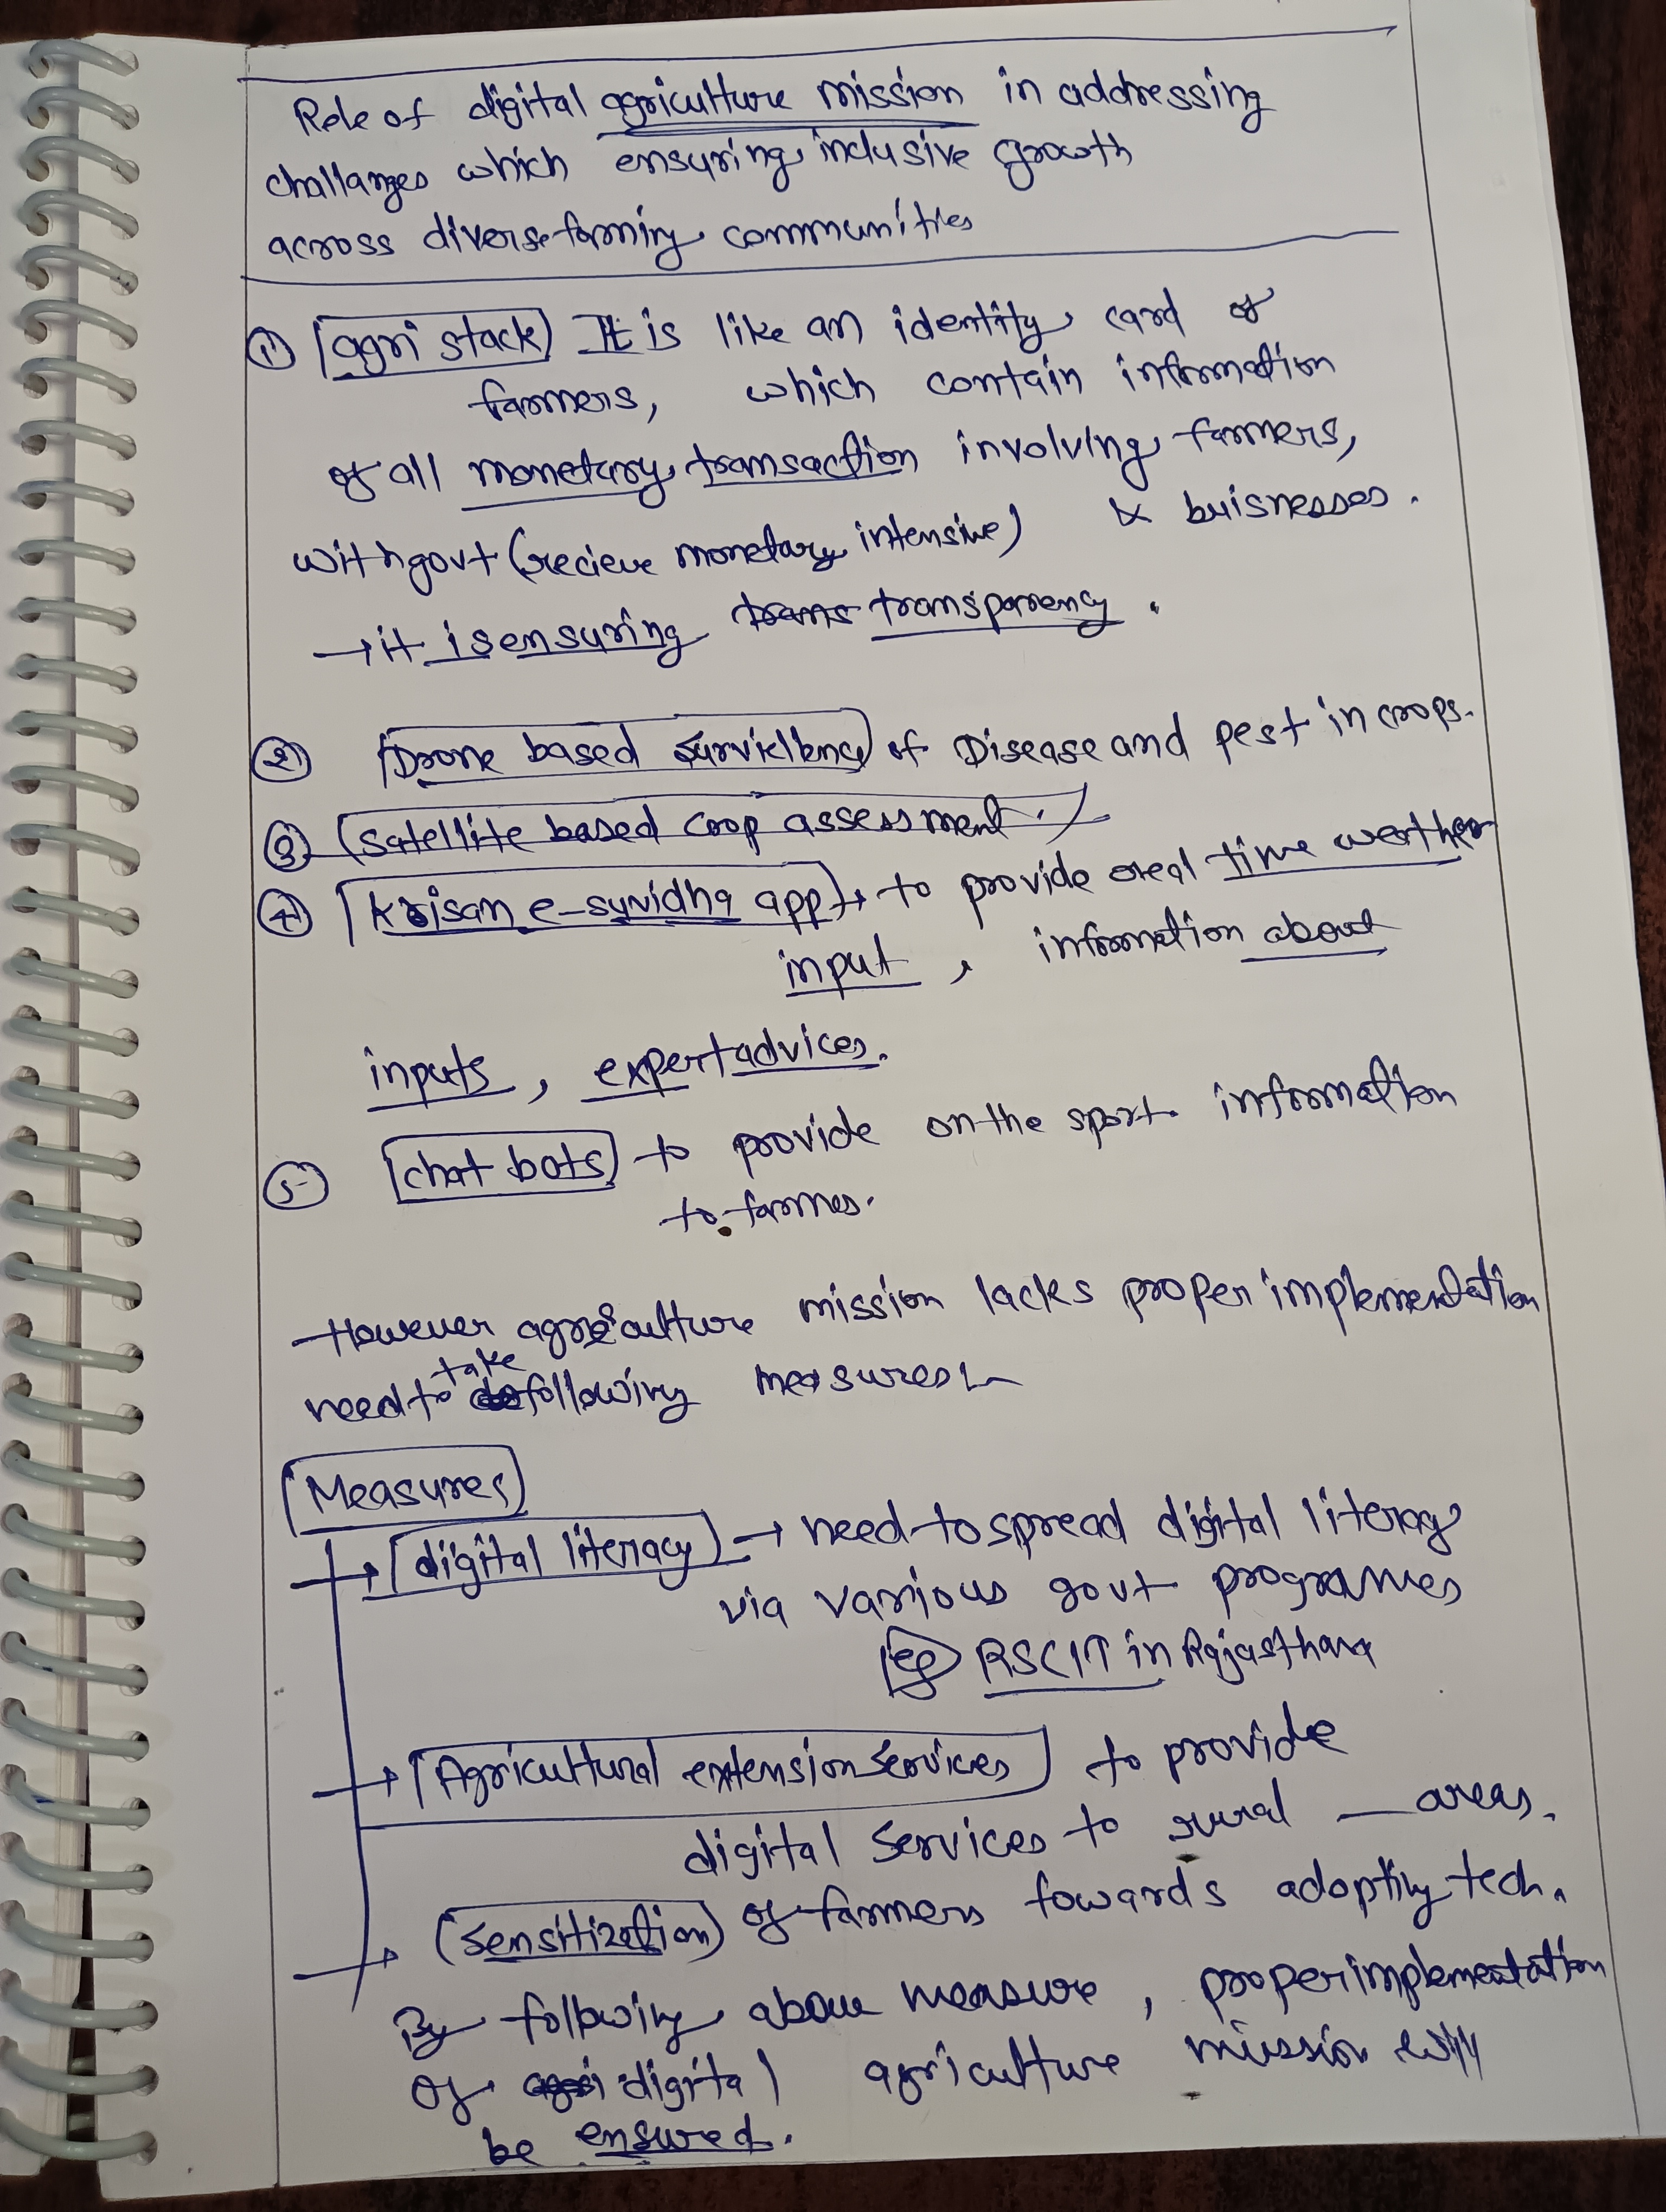 Role of digital agriculture mission in addressing
challanges which ensuring inclusive growth
across diverse farming communities
① agri stack It is like an identity card of
farmers, which contain information
of all monetary transaction involving farmers,
with govt (recieve monetary intensive) & buisnesses.
→ it is ensuring trans transparency.
② Drone based surviellence of Disease and pest in crops.
③ Satellite based crop assessment.
④ Krisan e-suvidha app → to provide real time weather
input, information about
inputs, expert advices.
⑤ chat bots to provide on the sport information
to farmes.
However agriculture mission lacks proper implementation
need to take following measures :-
Measures
→ digital literacy → need to spread digital literacy
via various govt programmes
eg RSCIT in Rajasthan
→ Agricultural extension services to provide
digital services to rural areas.
→ Sensitization of farmers towards adopting tech.
By following above measure, proper implementation
of agri digital agriculture mission will
be ensured.